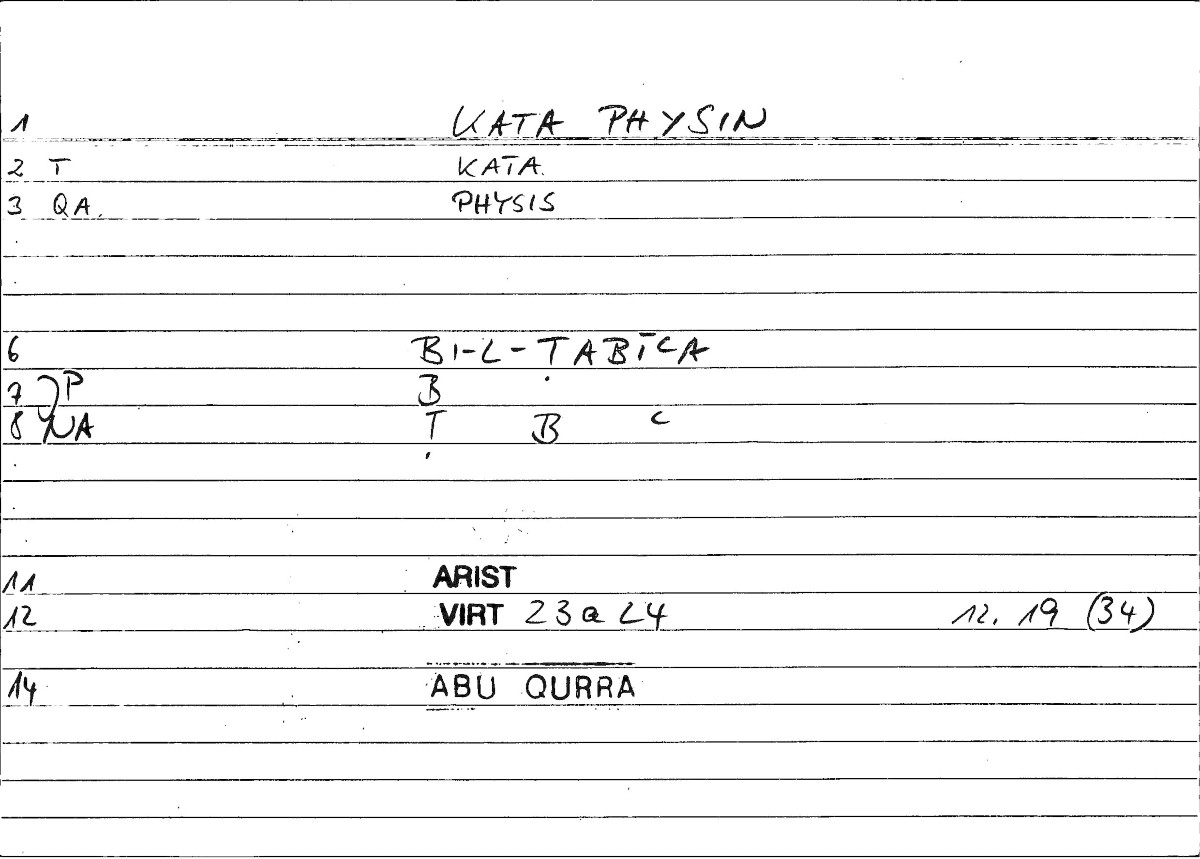 1 KATA PHYSIN
2 T KATA.
3 QA. PHYSIS
6 BI-L-ṬABĪCA
7 P B
8 NA Ṭ B C
11 ARIST
12 VIRT 23a24 12. 19 (34)
14 ABU QURRA